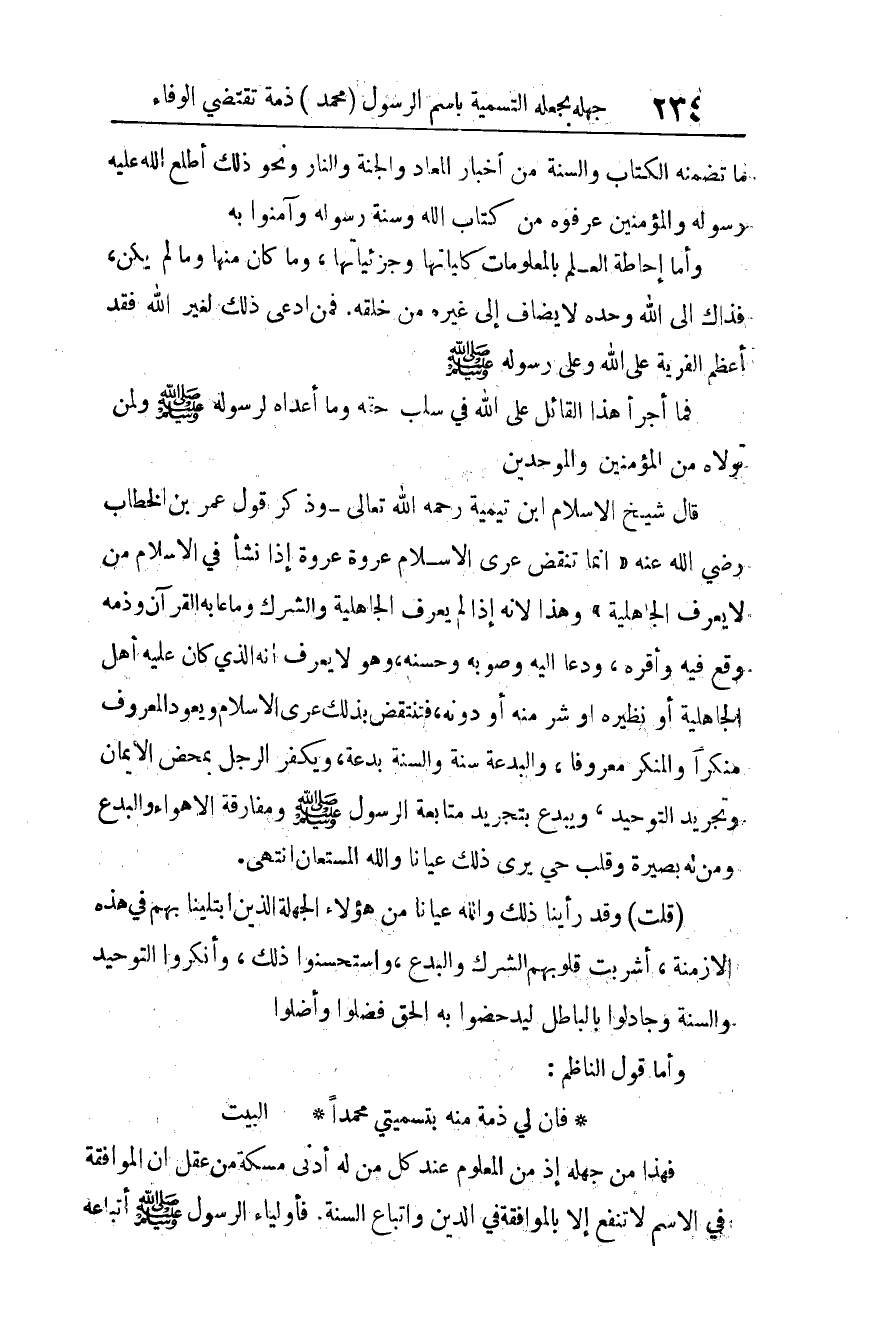 ٢٣٤ جهله بجعله التسمية باسم الرسول (محمد) ذمة تقتضي الوفاء
ما تضمنه الكتاب والسنة من أخبار المعاد والجنة والنار ونحو ذلك أطلع الله عليه
رسوله والمؤمنين عرفوه من كتاب الله وسنة رسوله وآمنوا به
وأما إحاطة العلم بالمعلومات كلياتها وجزئياتها، وما كان منها وما لم يكن،
فذاك الى الله وحده لا يضاف إلى غيره من خلقه. فمن ادعى ذلك لغير الله فقد
أعظم الفرية على الله وعلى رسوله ﷺ
فما أجرأ هذا القائل على الله في سلب حقه وما أعداه لرسوله ﷺ ولمن
تولاه من المؤمنين والموحدين
قال شيخ الاسلام ابن تيمية رحمه الله تعالى - وذكر قول عمر بن الخطاب
رضي الله عنه « انما تنقض عرى الاسلام عروة عروة إذا نشأ في الاسلام من
لا يعرف الجاهلية » وهذا لانه إذا لم يعرف الجاهلية والشرك وما عابه القرآن وذمه
وقع فيه وأقره، ودعا اليه وصوبه وحسنه، وهو لا يعرف انه الذي كان عليه أهل
الجاهلية أو نظيره او شر منه أو دونه، فتنتقض بذلك عرى الاسلام ويعود المعروف
منكراً والمنكر معروفا، والبدعة سنة والسنة بدعة، ويكفر الرجل بمحض الايمان
وتجريد التوحيد، ويبدع بتجريد متابعة الرسول ﷺ ومفارقة الاهواء والبدع
ومن له بصيرة وقلب حي يرى ذلك عيانا والله المستعان انتهى.
(قلت) وقد رأينا ذلك والله عيانا من هؤلاء الجهلة الذين ابتلينا بهم في هذه
الازمنة، أشربت قلوبهم الشرك والبدع، واستحسنوا ذلك، وأنكروا التوحيد
والسنة وجادلوا بالباطل ليدحضوا به الحق فضلوا وأضلوا
وأما قول الناظم:
* فان لي ذمة منه بتسميتي محمداً * البيت
فهذا من جهله إذ من المعلوم عند كل من له أدنى مسكة من عقل ان الموافقة
في الاسم لا تنفع إلا بالموافقة في الدين واتباع السنة. فأولياء الرسول ﷺ أتباعه